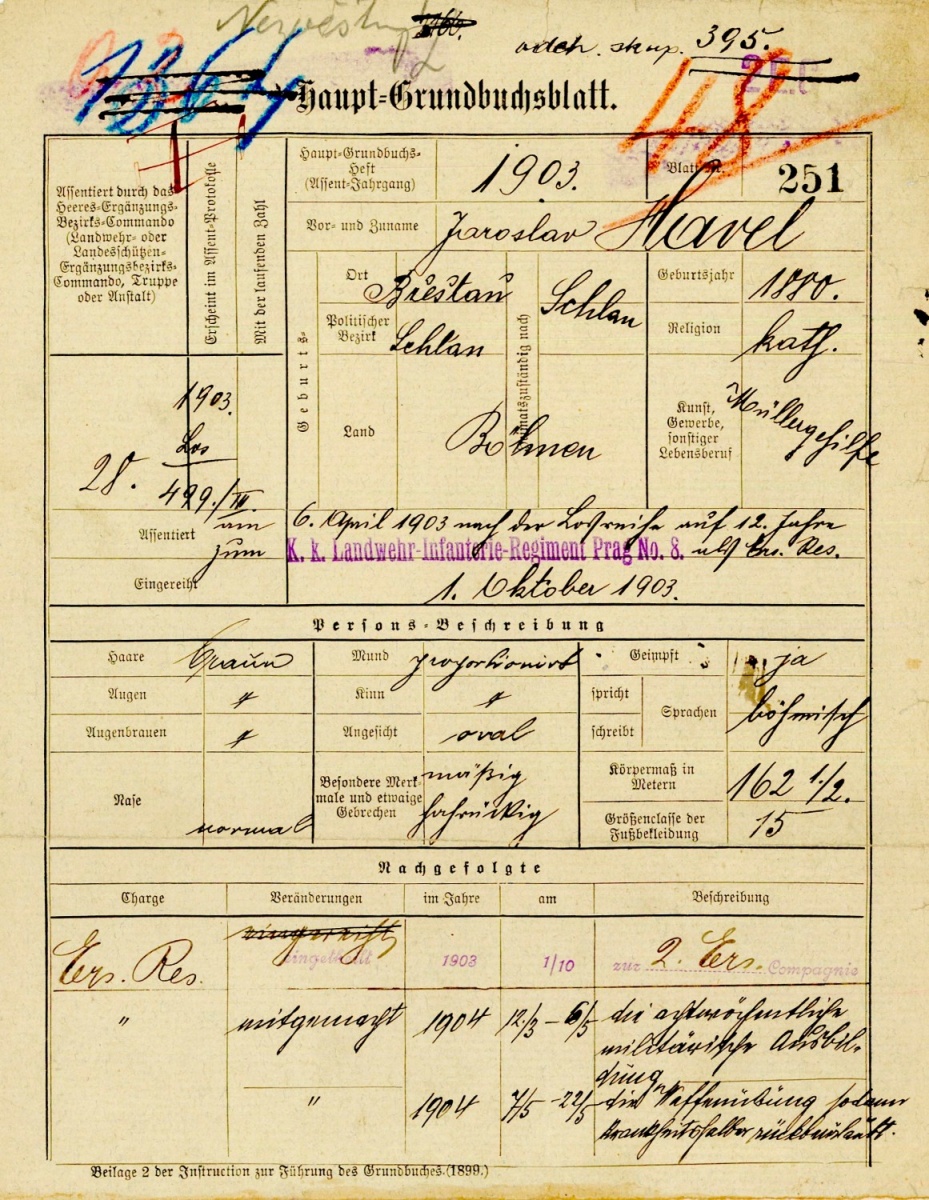 odch. skup. 395.
Haupt-Grundbuchsblatt.
48
Assentiert durch das
Heeres-Ergänzungs-
Bezirks-Commando
(Landwehr- oder
Landesschützen-
Ergänzungsbezirks-
Commando, Truppe
oder Anstalt)
Erscheint im Assent-Protokolle
Mit der laufenden Zahl
Haupt-Grundbuchs-
Heft
(Assent-Jahrgang)
1903.
Blatt Nr.
251
Vor- und Zuname
Jaroslav Havel
Geburts-
Ort
Břestan
Politischer
Bezirk
Schlan
Land
Böhmen
Heimatszuständig nach
Schlan
Geburtsjahr
1880.
Religion
kath.
Kunst,
Gewerbe,
sonstiger
Lebensberuf
Müllergehilfe
1903.
Los
28.
499./III.
Assentiert
am
6. April 1903 nach der Losreihe auf 12. Jahre
zum
K. k. Landwehr-Infanterie-Regiment Prag No. 8. als Ers. Res.
Eingereiht
1. Oktober 1903.
Persons-Beschreibung
Haare
braun
Mund
proportionirt
Geimpft
ja
Augen
"
Kinn
"
spricht
schreibt
Sprachen
böhmisch
Augenbrauen
"
Angesicht
oval
Nase
normal
Besondere Merk-
male und etwaige
Gebrechen
mäßig
Körpermaß in
Metern
162 1/2.
Größenclasse der
Fußbekleidung
15
Nachgefolgte
Charge
Veränderungen
im Jahre
am
Beschreibung
Ers. Res.
eingetheilt
1903
1/10
zur 2. Ers. Compagnie
"
mitgemacht
1904
12/3 - 6/5
die achtwöchentliche
militärische Ausbil-
dung
"
1904
7/5 - 22/5
die Waffenübung sodann
krankheitshalber rückbeurlaubt.
Beilage 2 der Instruction zur Führung des Grundbuches.(1899.)